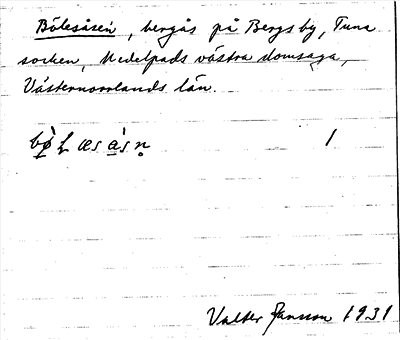 Bölesåsen, bergås på Bergsby, Tuna
socken, Medelpads västra domsaga,
Västernorrlands län.
1
Valter Jansson 1931